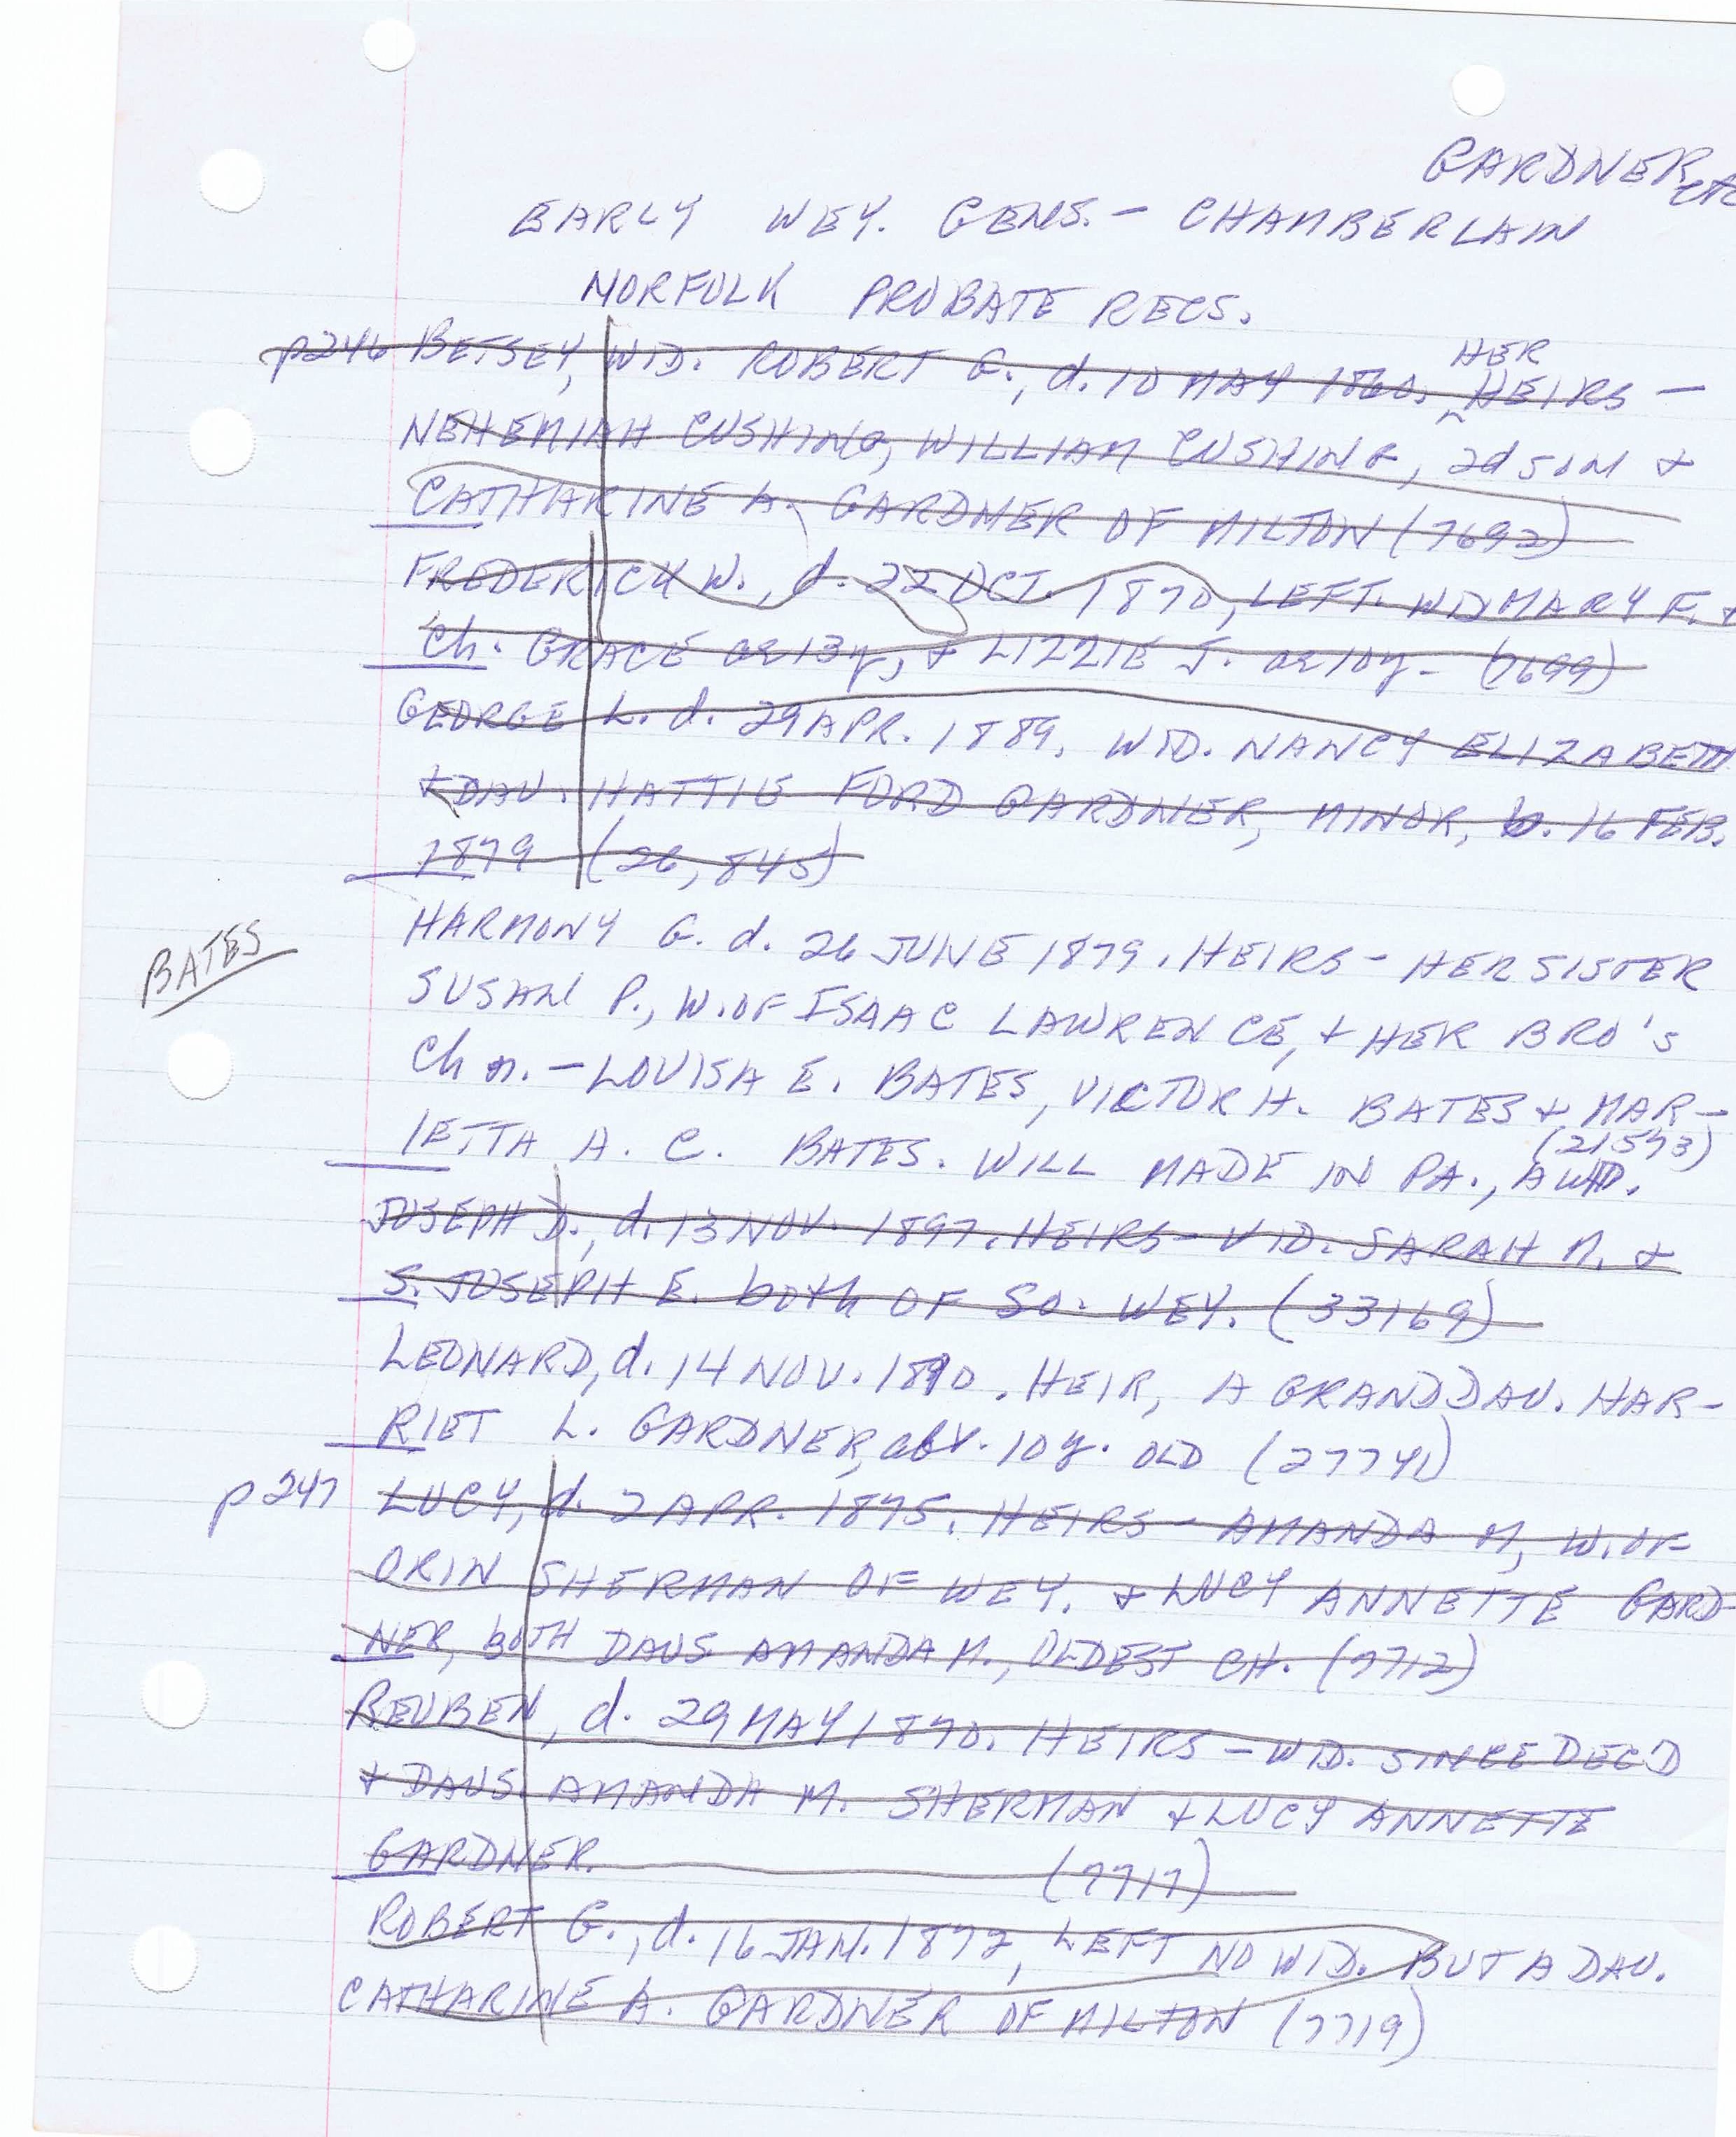 GARDNER etc
EARLY WEY. GENS. - CHAMBERLAIN
NORFOLK PROBATE RECS.
p246 BETSEY, WID. ROBERT G., d. 10 MAY 1860. HER HEIRS -
NEHEMIAH CUSHING, WILLIAM CUSHING, 2d SON &
CATHARINE A. GARDNER OF MILTON (7692)
FREDERICK W., d. 22 OCT. 1870, LEFT WID MARY F. &
Ch. GRACE ae 13y, & LIZZIE J. ae 10y - (7699)
GEORGE L. d. 29 APR. 1889. WID. NANCY ELIZABETH
& DAU. HATTIE FORD GARDNER, MINOR, b. 16 FEB.
1879 (26,845)
BATES
HARMONY G. d. 26 JUNE 1879. HEIRS - HER SISTER
SUSAN P., W. OF ISAAC LAWRENCE, & HER BRO'S
Chn. - LOUISA E. BATES, VICTOR H. BATES & MAR-
IETTA A. C. BATES. WILL MADE IN PA., A WID. (21573)
JOSEPH D., d. 13 NOV. 1897. HEIRS - WID. SARAH M. &
S. JOSEPH E. both OF SO. WEY. (33169)
LEONARD, d. 14 NOV. 1890. HEIR, A GRANDDAU. HAR-
RIET L. GARDNER, abt. 10y. OLD (27741)
p247 LUCY, d. 2 APR. 1875. HEIRS - AMANDA M, W. OF
ORIN SHERMAN OF WEY. & LUCY ANNETTE GARD-
NER, BOTH DAUS AMANDA M., OLDEST CH. (7712)
REUBEN, d. 29 MAY 1870. HEIRS - WID. SINCE DEC'D
& DAUS. AMANDA M. SHERMAN & LUCY ANNETTE
GARDNER. (7717)
ROBERT G., d. 16 JAN. 1872, LEFT NO WID. BUT A DAU.
CATHARINE A. GARDNER OF MILTON (7719)